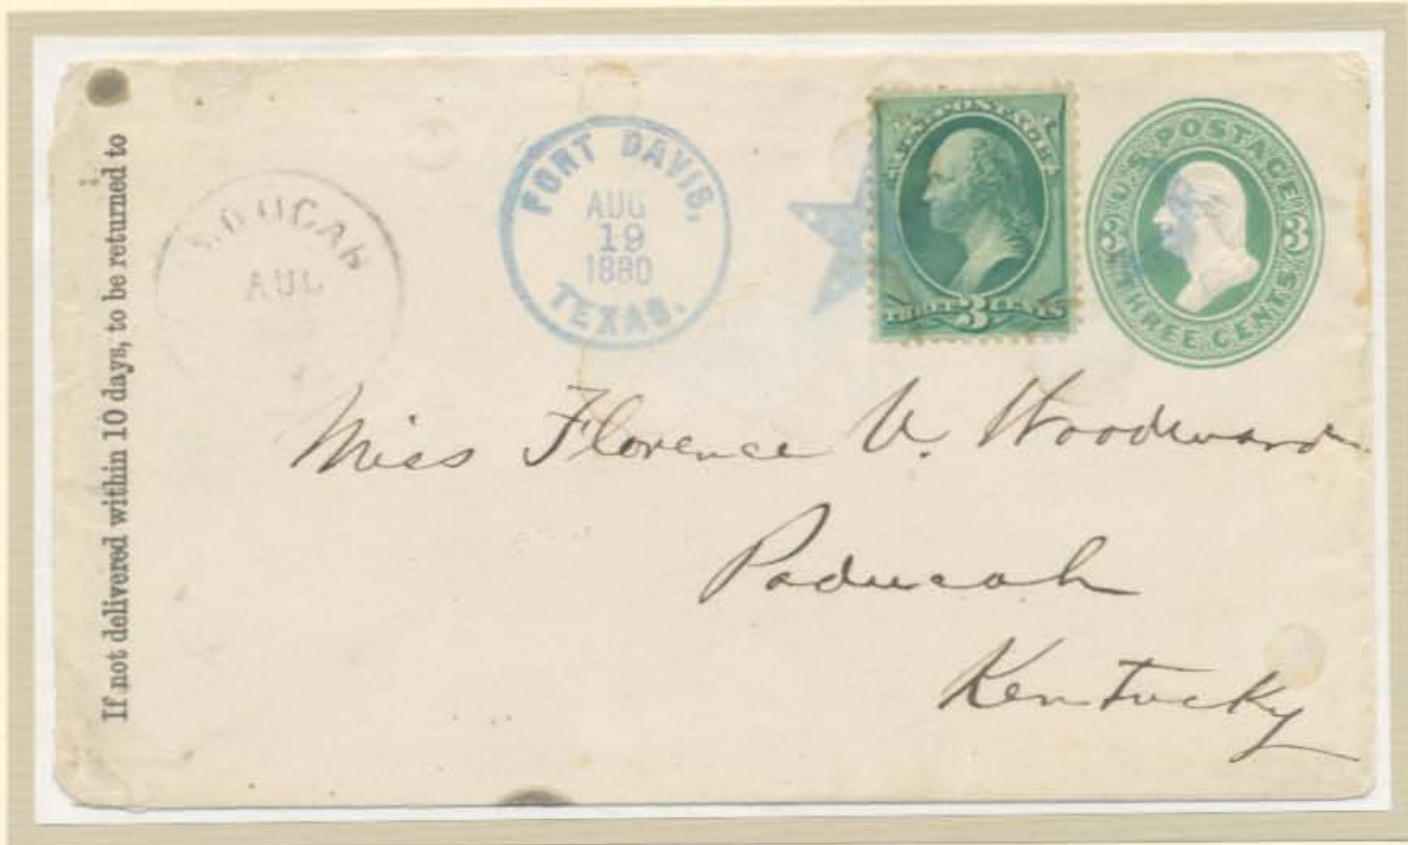 If not delivered within 10 days, to be returned to
AUG
FORT DAVIS,
AUG
19
1880
TEXAS.
U.S. POSTAGE
THREE 3 CENTS
U.S. POSTAGE
3 3
THREE CENTS
Miss Florence V. Woodward
Paducah
Kentucky